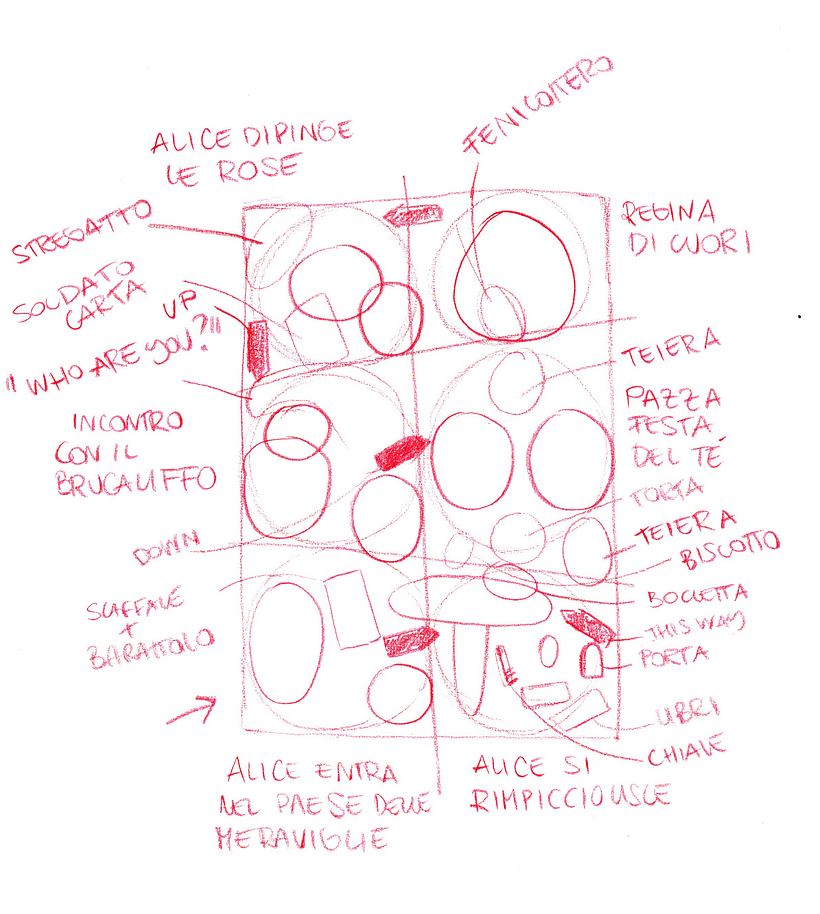 FENICOTTERO
ALICE DIPINGE
LE ROSE
STREGATTO
REGINA
DI CUORI
SOLDATO
CARTA
UP
"WHO ARE YOU?!"
TEIERA
INCONTRO
CON IL
BRUCALIFFO
PAZZA
FESTA
DEL TÉ
TORTA
TEIERA
BISCOTTO
DOWN
SCAFFALE
+
BARATTOLO
BOCCETTA
THIS WAY
PORTA
LIBRI
CHIAVE
ALICE ENTRA
NEL PAESE DELLE
MERAVIGLIE
ALICE SI
RIMPICCIOLISCE